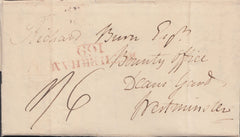 Richard Burn Esqr
Bounty Office
Deans Yard
Westminster